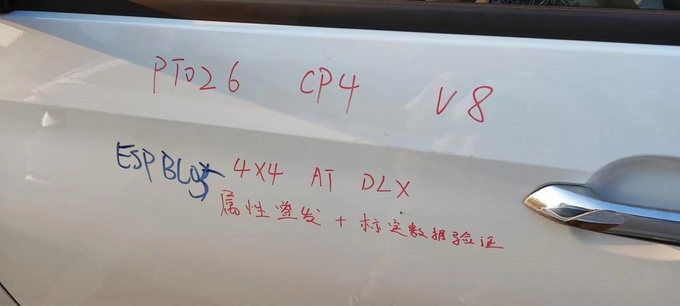 PT026 CP4 V8
ESP BL05 4X4 AT DLX
属性签发 + 标定数据验证